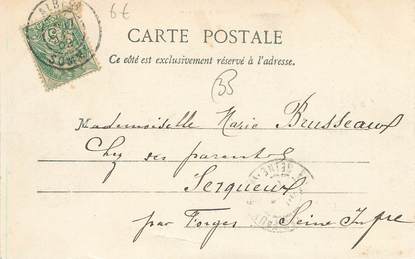 6€
ALBERT
SOMME
CARTE POSTALE
Ce côté est exclusivement réservé à l'adresse.
35
Mademoiselle Marie Brusseaux
Chez ses parents
Serqueux
par Forges Seine Infre